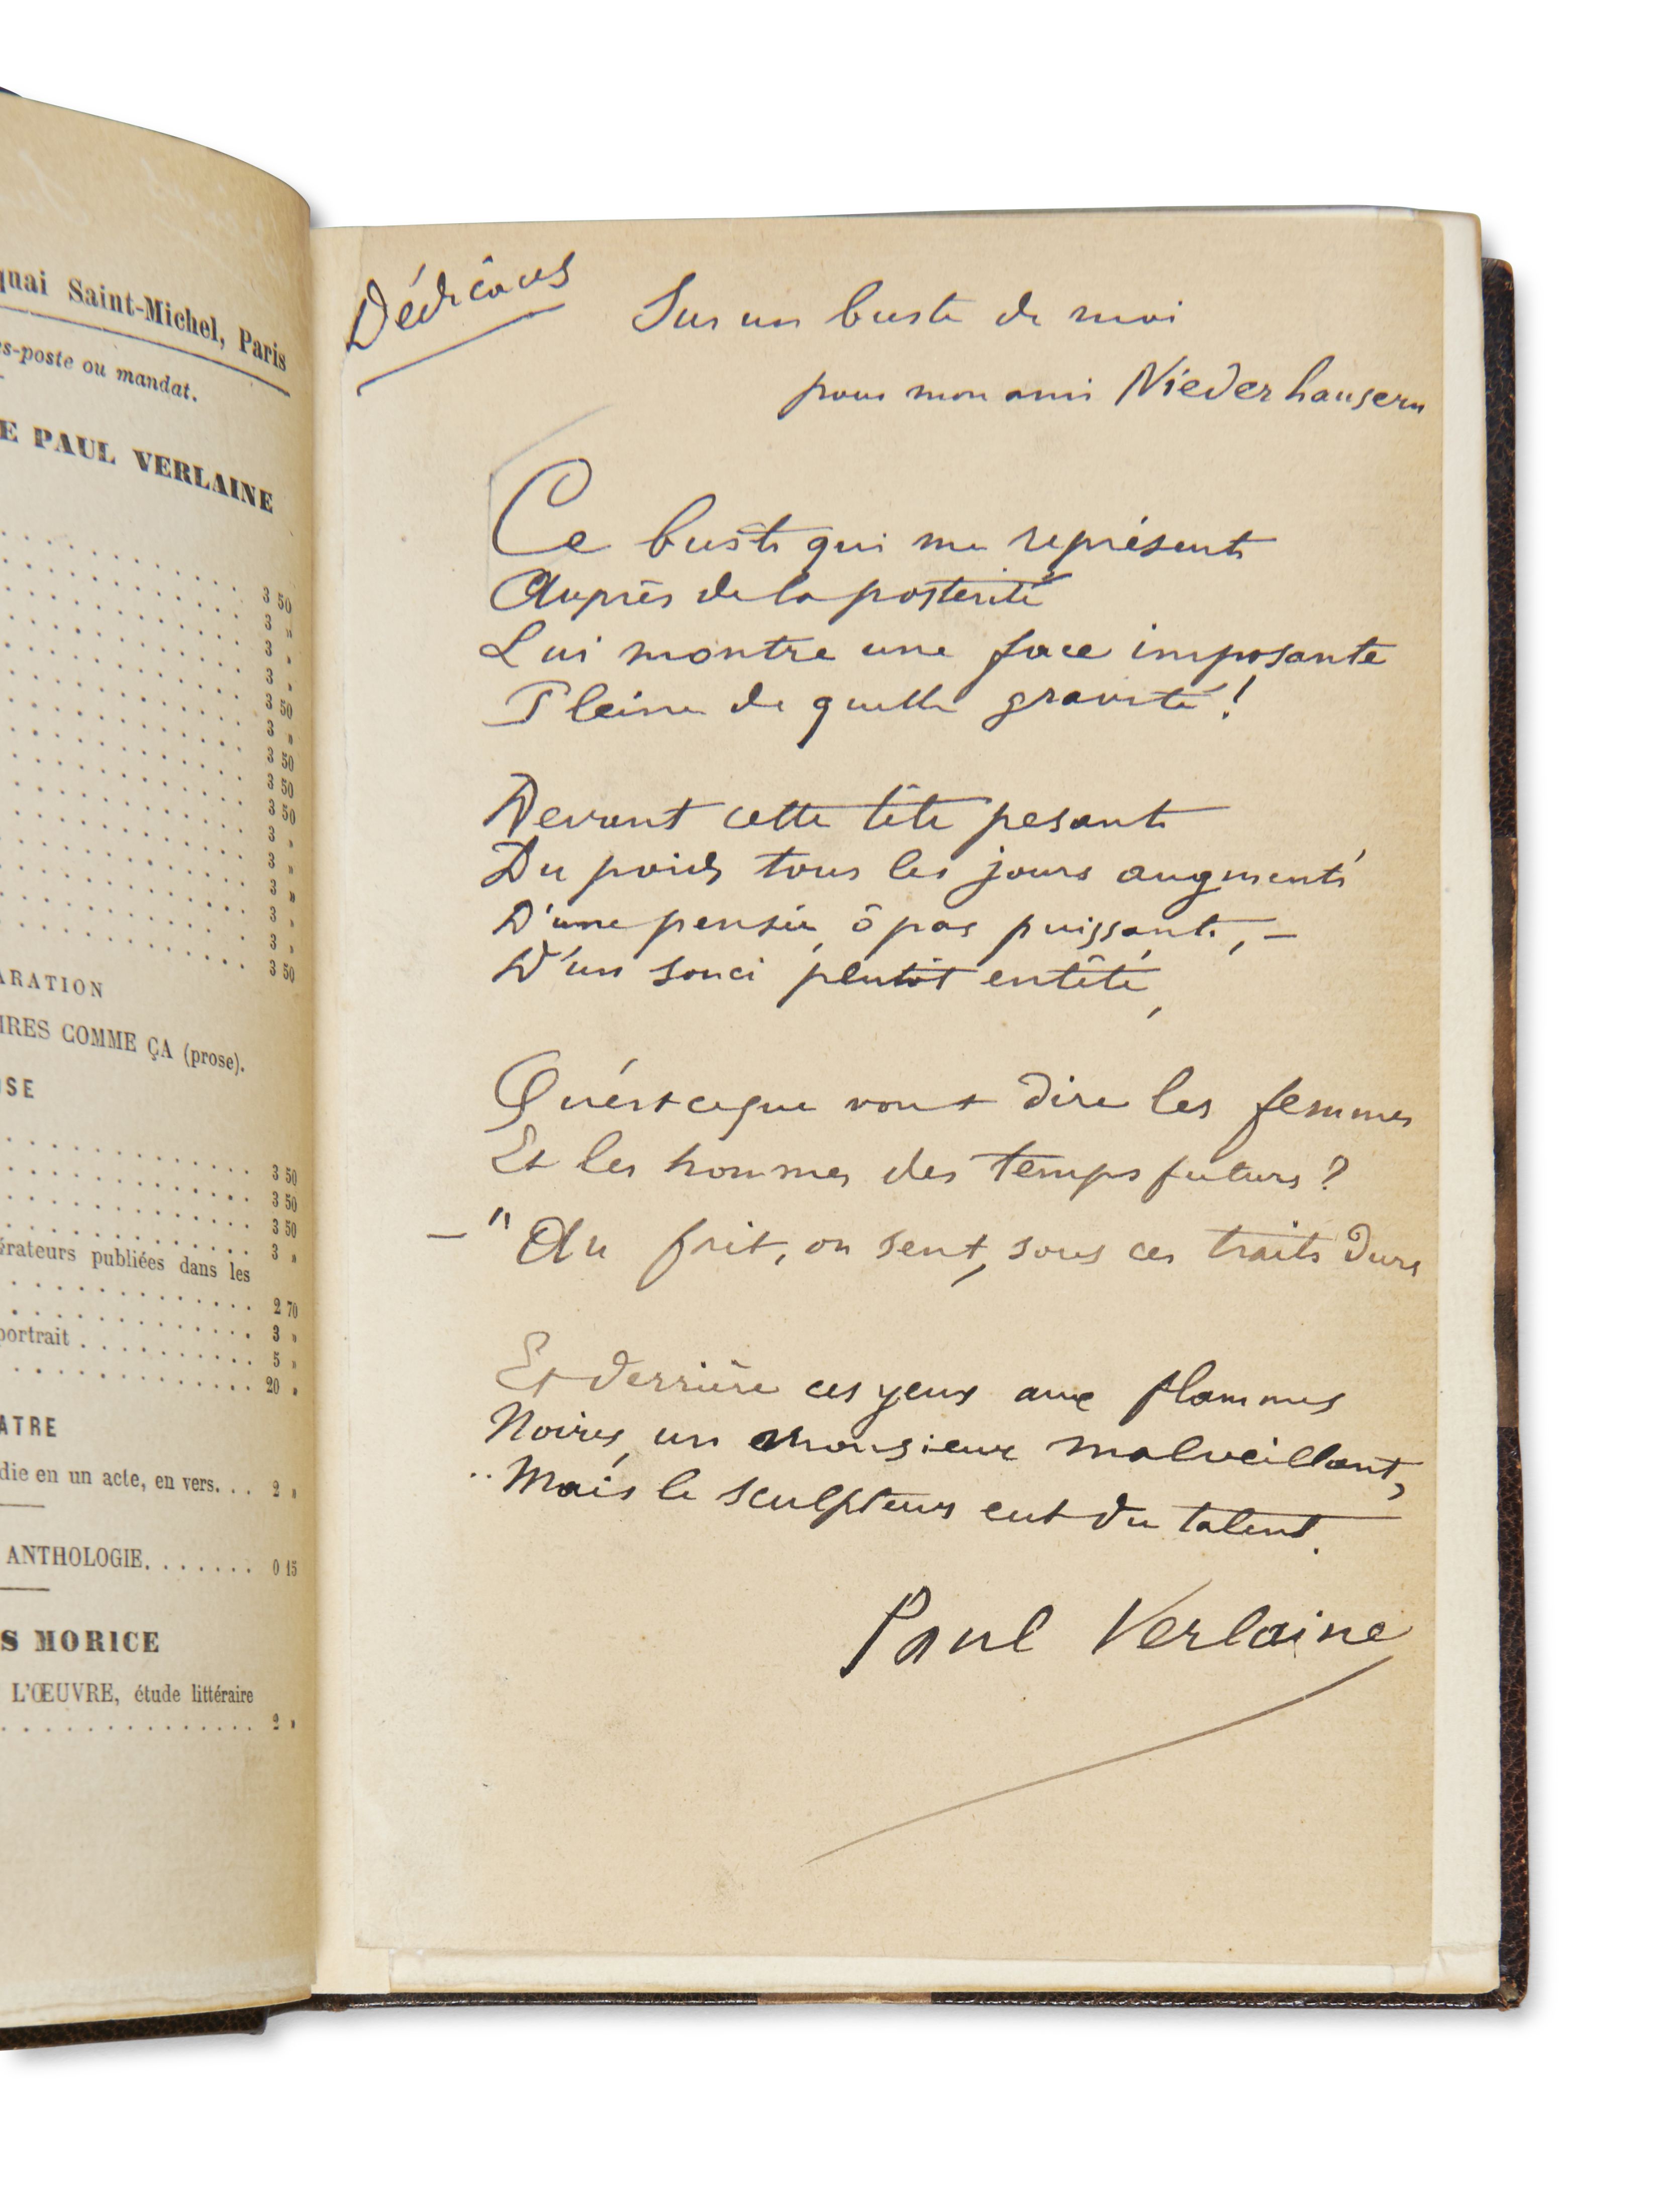 quai Saint-Michel, Paris
es-poste ou mandat.
E PAUL VERLAINE
3 50
3 »
3 »
3 »
3 50
3 »
3 50
3 50
3 50
3 »
3 »
3 »
3 »
3 »
3 50
ARATION
IRES COMME ÇA (prose).
OSE
3 50
3 50
3 50
3 »
érateurs publiées dans les
2 70
3 »
portrait 5 »
20 »
ATRE
die en un acte, en vers. . . 2 »
ANTHOLOGIE. . . . . . . 0 15
S MORICE
L'ŒUVRE, étude littéraire
2 »
Dédicaces
Sur un buste de moi
pour mon ami Niederhausern
Ce buste qui me représente
Auprès de la postérité
Lui montre une face imposante
Pleine de quelle gravité !
Devant cette tête pesante
Du poids tous les jours augmenté
D'une pensée, ô pas puissante, —
D'un souci plutôt entêté,
Qu'est ce que vont dire les femmes
Et les hommes des temps futurs ?
— "Au fait, on sent, sous ces traits durs
Et derrière ces yeux aux flammes
Noires, un monsieur malveillant,
Mais le sculpteur eut du talent.
Paul Verlaine